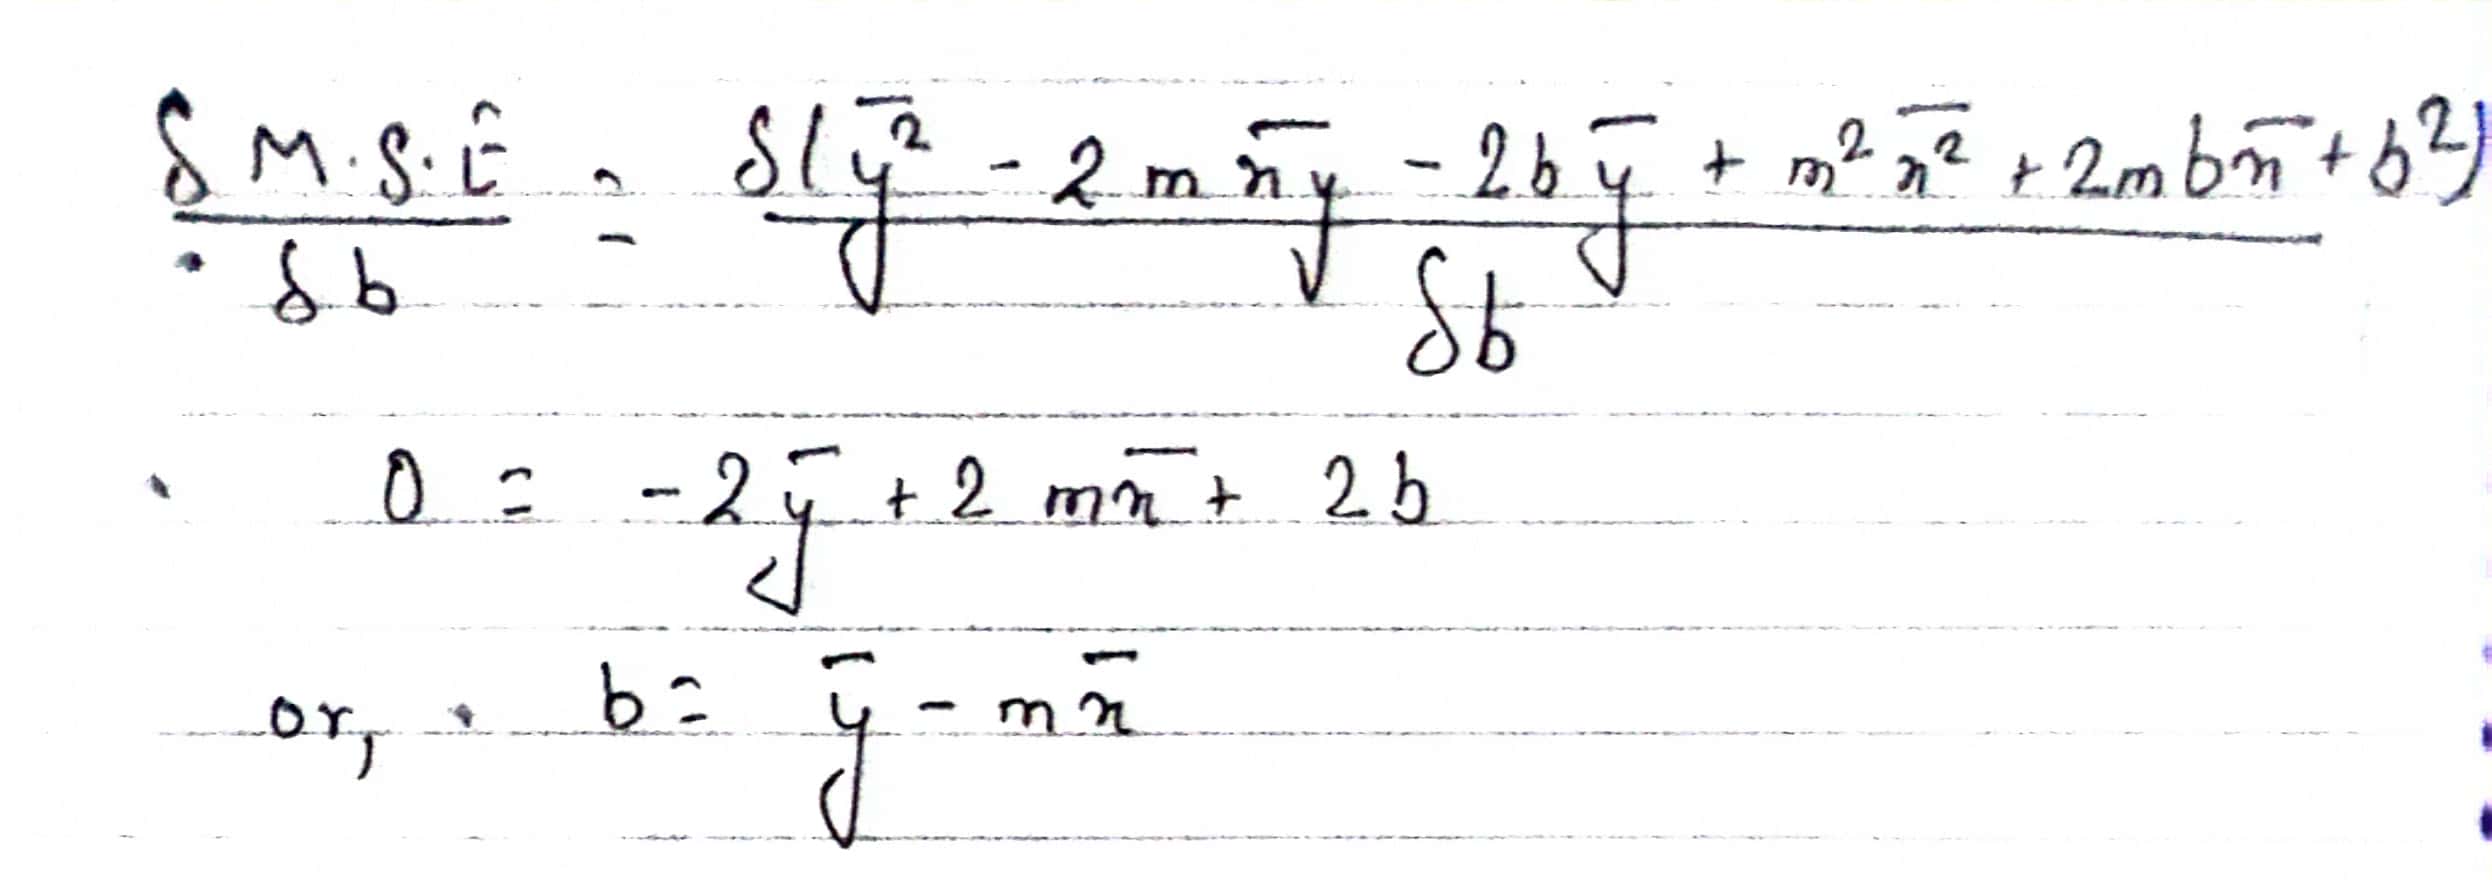 δ M.S.E / δb = δ(y̅² - 2m x̅y̅ - 2b y̅ + m² x̅² + 2mb x̅ + b²) / δb
0 = -2y̅ + 2mx̅ + 2b
or, b = y̅ - mx̅